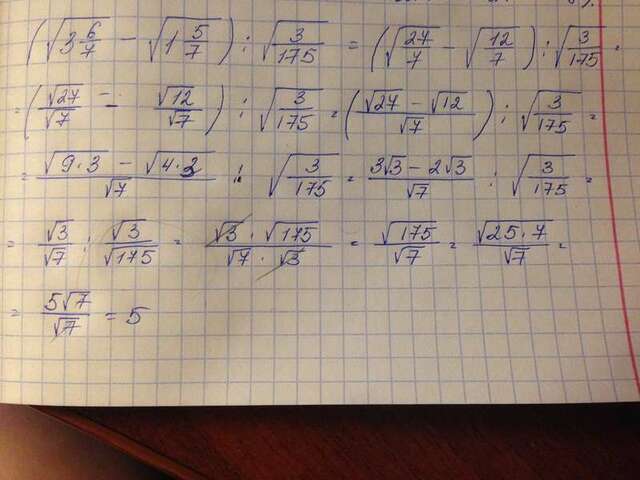 (√3 6/7 − √1 5/7) : √3/175 = (√27/7 − √12/7) : √3/175 =
= (√27/√7 − √12/√7) : √3/175 = (√27 − √12/√7) : √3/175 =
= √9·3 − √4·3/√7 : √3/175 = 3√3 − 2√3/√7 : √3/175 =
= √3/√7 : √3/√175 = √3 · √175/√7 · √3 = √175/√7 = √25·7/√7 =
= 5√7/√7 = 5